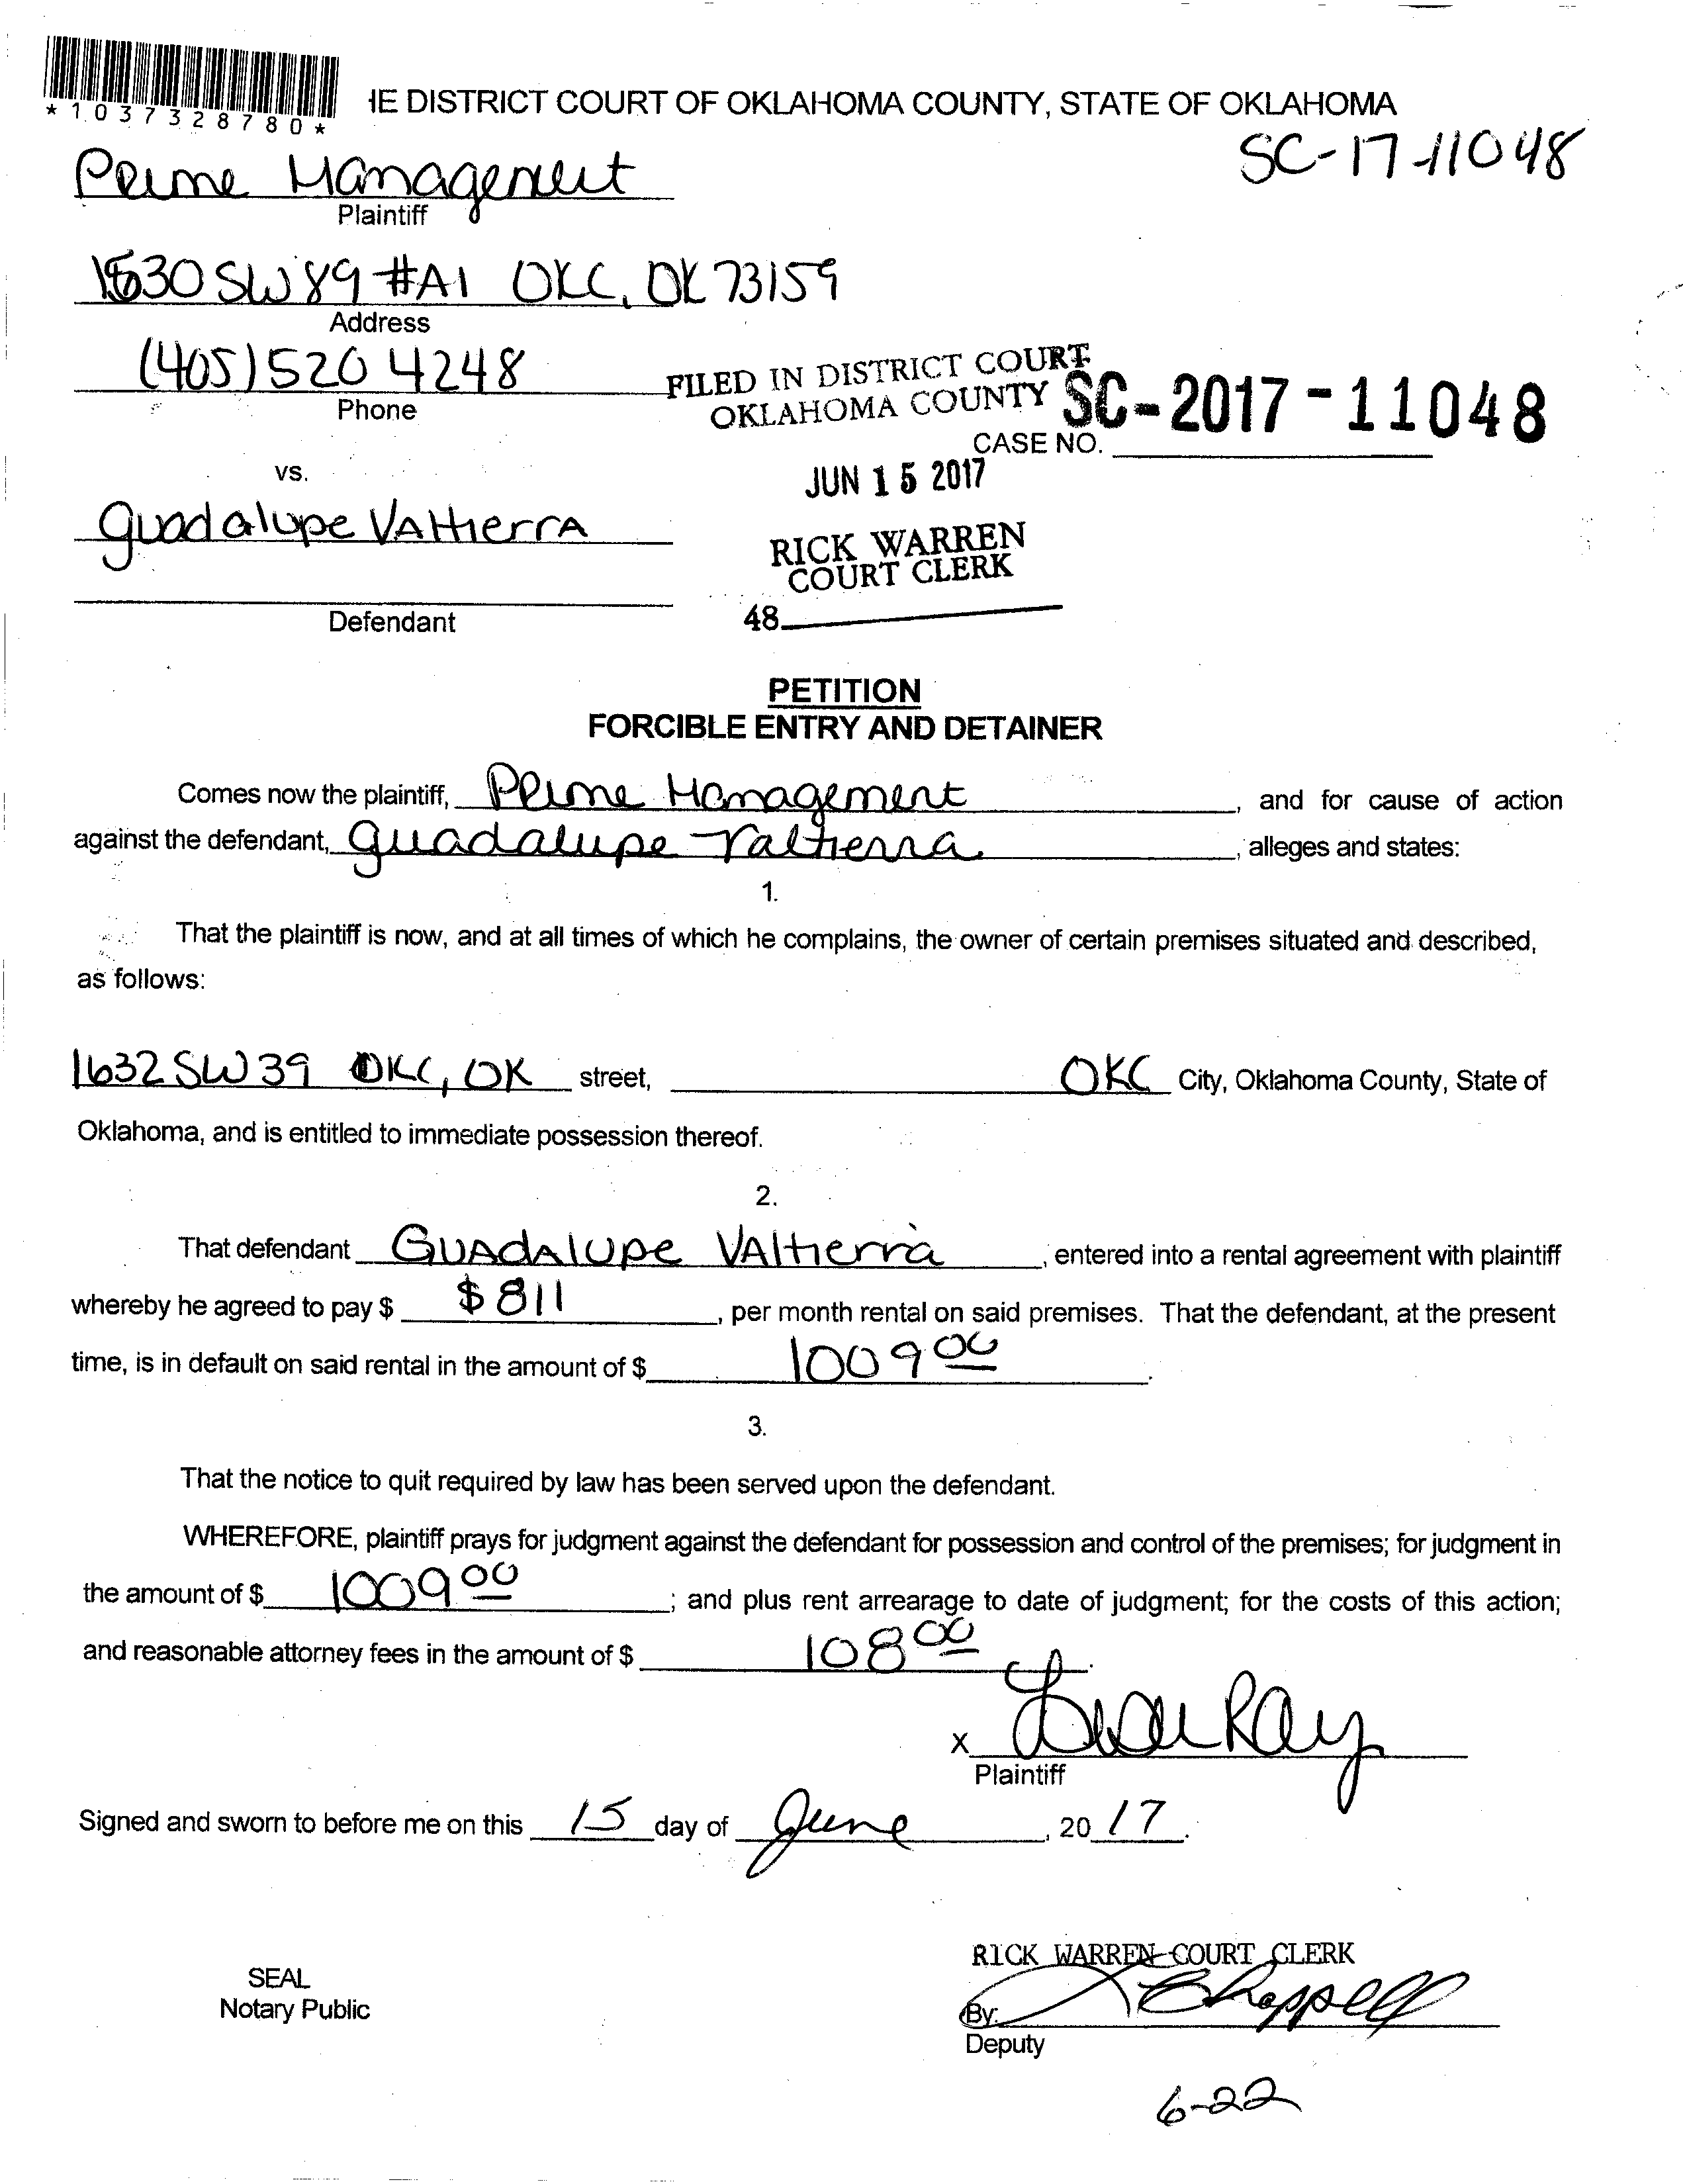 *1037328780*
IE DISTRICT COURT OF OKLAHOMA COUNTY, STATE OF OKLAHOMA
SC-17-11048
Prime Management
Plaintiff
1630 SW 89 #A1 OKC, OK 73159
Address
(405) 520 4248
Phone
FILED IN DISTRICT COURT
OKLAHOMA COUNTY
SC-2017-11048
CASE NO.
vs.
JUN 15 2017
Guadalupe Valtierra
RICK WARREN
COURT CLERK
Defendant
48
PETITION
FORCIBLE ENTRY AND DETAINER
Comes now the plaintiff, Prime Management, and for cause of action
against the defendant, Guadalupe Valtierra, alleges and states:
1.
That the plaintiff is now, and at all times of which he complains, the owner of certain premises situated and described,
as follows:
1632 SW 39 OKC, OK street, OKC City, Oklahoma County, State of
Oklahoma, and is entitled to immediate possession thereof.
2.
That defendant Guadalupe Valtierra, entered into a rental agreement with plaintiff
whereby he agreed to pay $ $811, per month rental on said premises. That the defendant, at the present
time, is in default on said rental in the amount of $ 1009 00.
3.
That the notice to quit required by law has been served upon the defendant.
WHEREFORE, plaintiff prays for judgment against the defendant for possession and control of the premises; for judgment in
the amount of $ 1009 00; and plus rent arrearage to date of judgment; for the costs of this action;
and reasonable attorney fees in the amount of $ 108 00.
X Ray
Plaintiff
Signed and sworn to before me on this 15 day of June, 20 17.
RICK WARREN COURT CLERK
SEAL
Notary Public
By: Chappell
Deputy
6-22